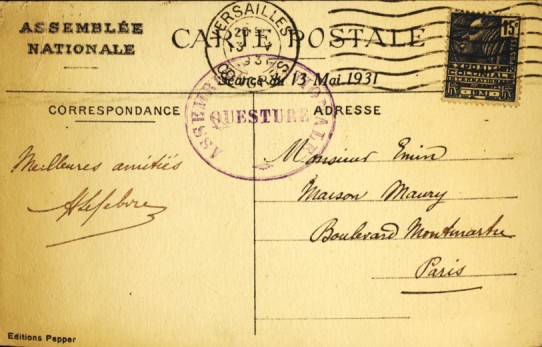 ASSEMBLÉE
NATIONALE
CARTE POSTALE
VERSAILLES
Séance du 13 Mai 1931
15c
POSTES
EXPOSITION
COLONIALE
INTERNATIONALE
CORRESPONDANCE
ADRESSE
ASSEMBLÉE NATIONALE
QUESTURE
Meilleures amitiés
ALefebvre
Monsieur Emin
Maison Maury
Boulevard Montmartre
Paris
Editions Pepper